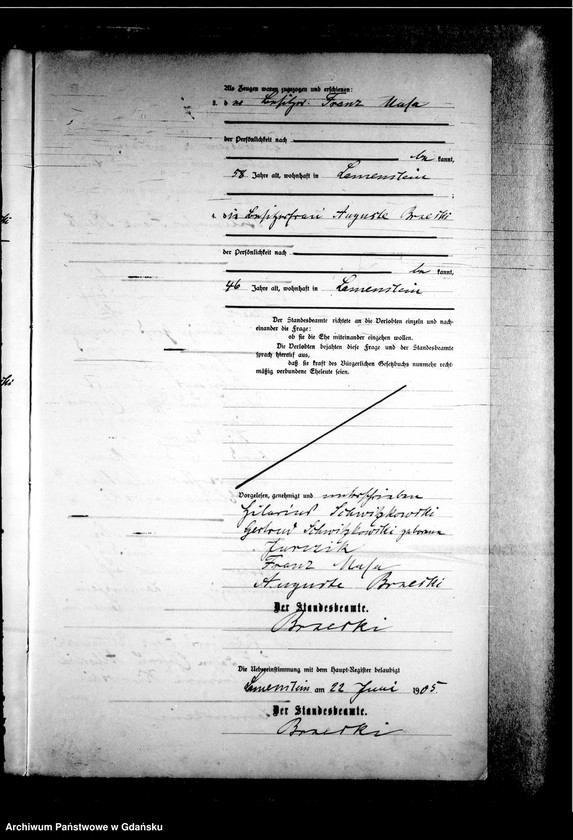 Als Zeugen waren zugezogen und erschienen:
3. der Besitzer Franz Masa
der Persönlichkeit nach
be kannt,
58 Jahre alt, wohnhaft in Lamenstein
;
4. die Besitzerfrau Auguste Brzeski
der Persönlichkeit nach
be kannt,
46 Jahre alt, wohnhaft in Lamenstein
Der Standesbeamte richtete an die Verlobten einzeln und nach-
einander die Frage:
ob sie die Ehe miteinander eingehen wollen.
Die Verlobten bejahten diese Frage und der Standesbeamte
sprach hierauf aus,
daß sie kraft des Bürgerlichen Gesetzbuchs nunmehr recht-
mäßig verbundene Eheleute seien.
Vorgelesen, genehmigt und unterschrieben
Hilarius Schwitzkowski
Gertrud Schwitzkowski geborene
Jurczik
Franz Masa
Auguste Brzeski
Der Standesbeamte.
Brzeski
Die Uebereinstimmung mit dem Haupt-Register beglaubigt
Lamenstein am 22 Juni 1905.
Der Standesbeamte.
Brzeski
Archiwum Państwowe w Gdańsku